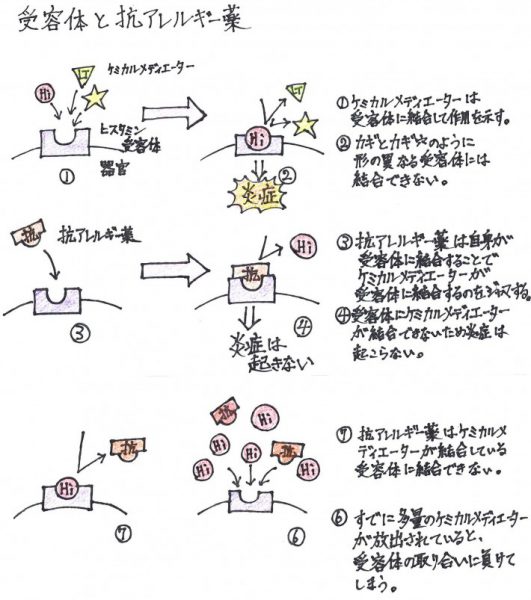 受容体と抗アレルギー薬
Hi
LT
ケミカルメディエーター
ヒスタミン
受容体
器官
①
Hi
LT
②
炎症
①ケミカルメディエーターは
受容体に結合して作用を示す。
②カギとカギ穴のように
形の異なる受容体には
結合できない。
抗
抗アレルギー薬
③
Hi
抗
④
炎症は
起きない
③抗アレルギー薬は自身が
受容体に結合することで
ケミカルメディエーターが
受容体に結合するのをジャマする。
④受容体にケミカルメディエーター
が結合できないため炎症は
起こらない。
抗
Hi
⑦
抗
Hi
Hi
Hi
Hi
抗
Hi
Hi
⑥
⑦抗アレルギー薬はケミカルメ
ディエーターが結合している
受容体に結合できない。
⑥すでに多量のケミカルメディエーター
が放出されていると、
受容体の取り合いに負けて
しまう。